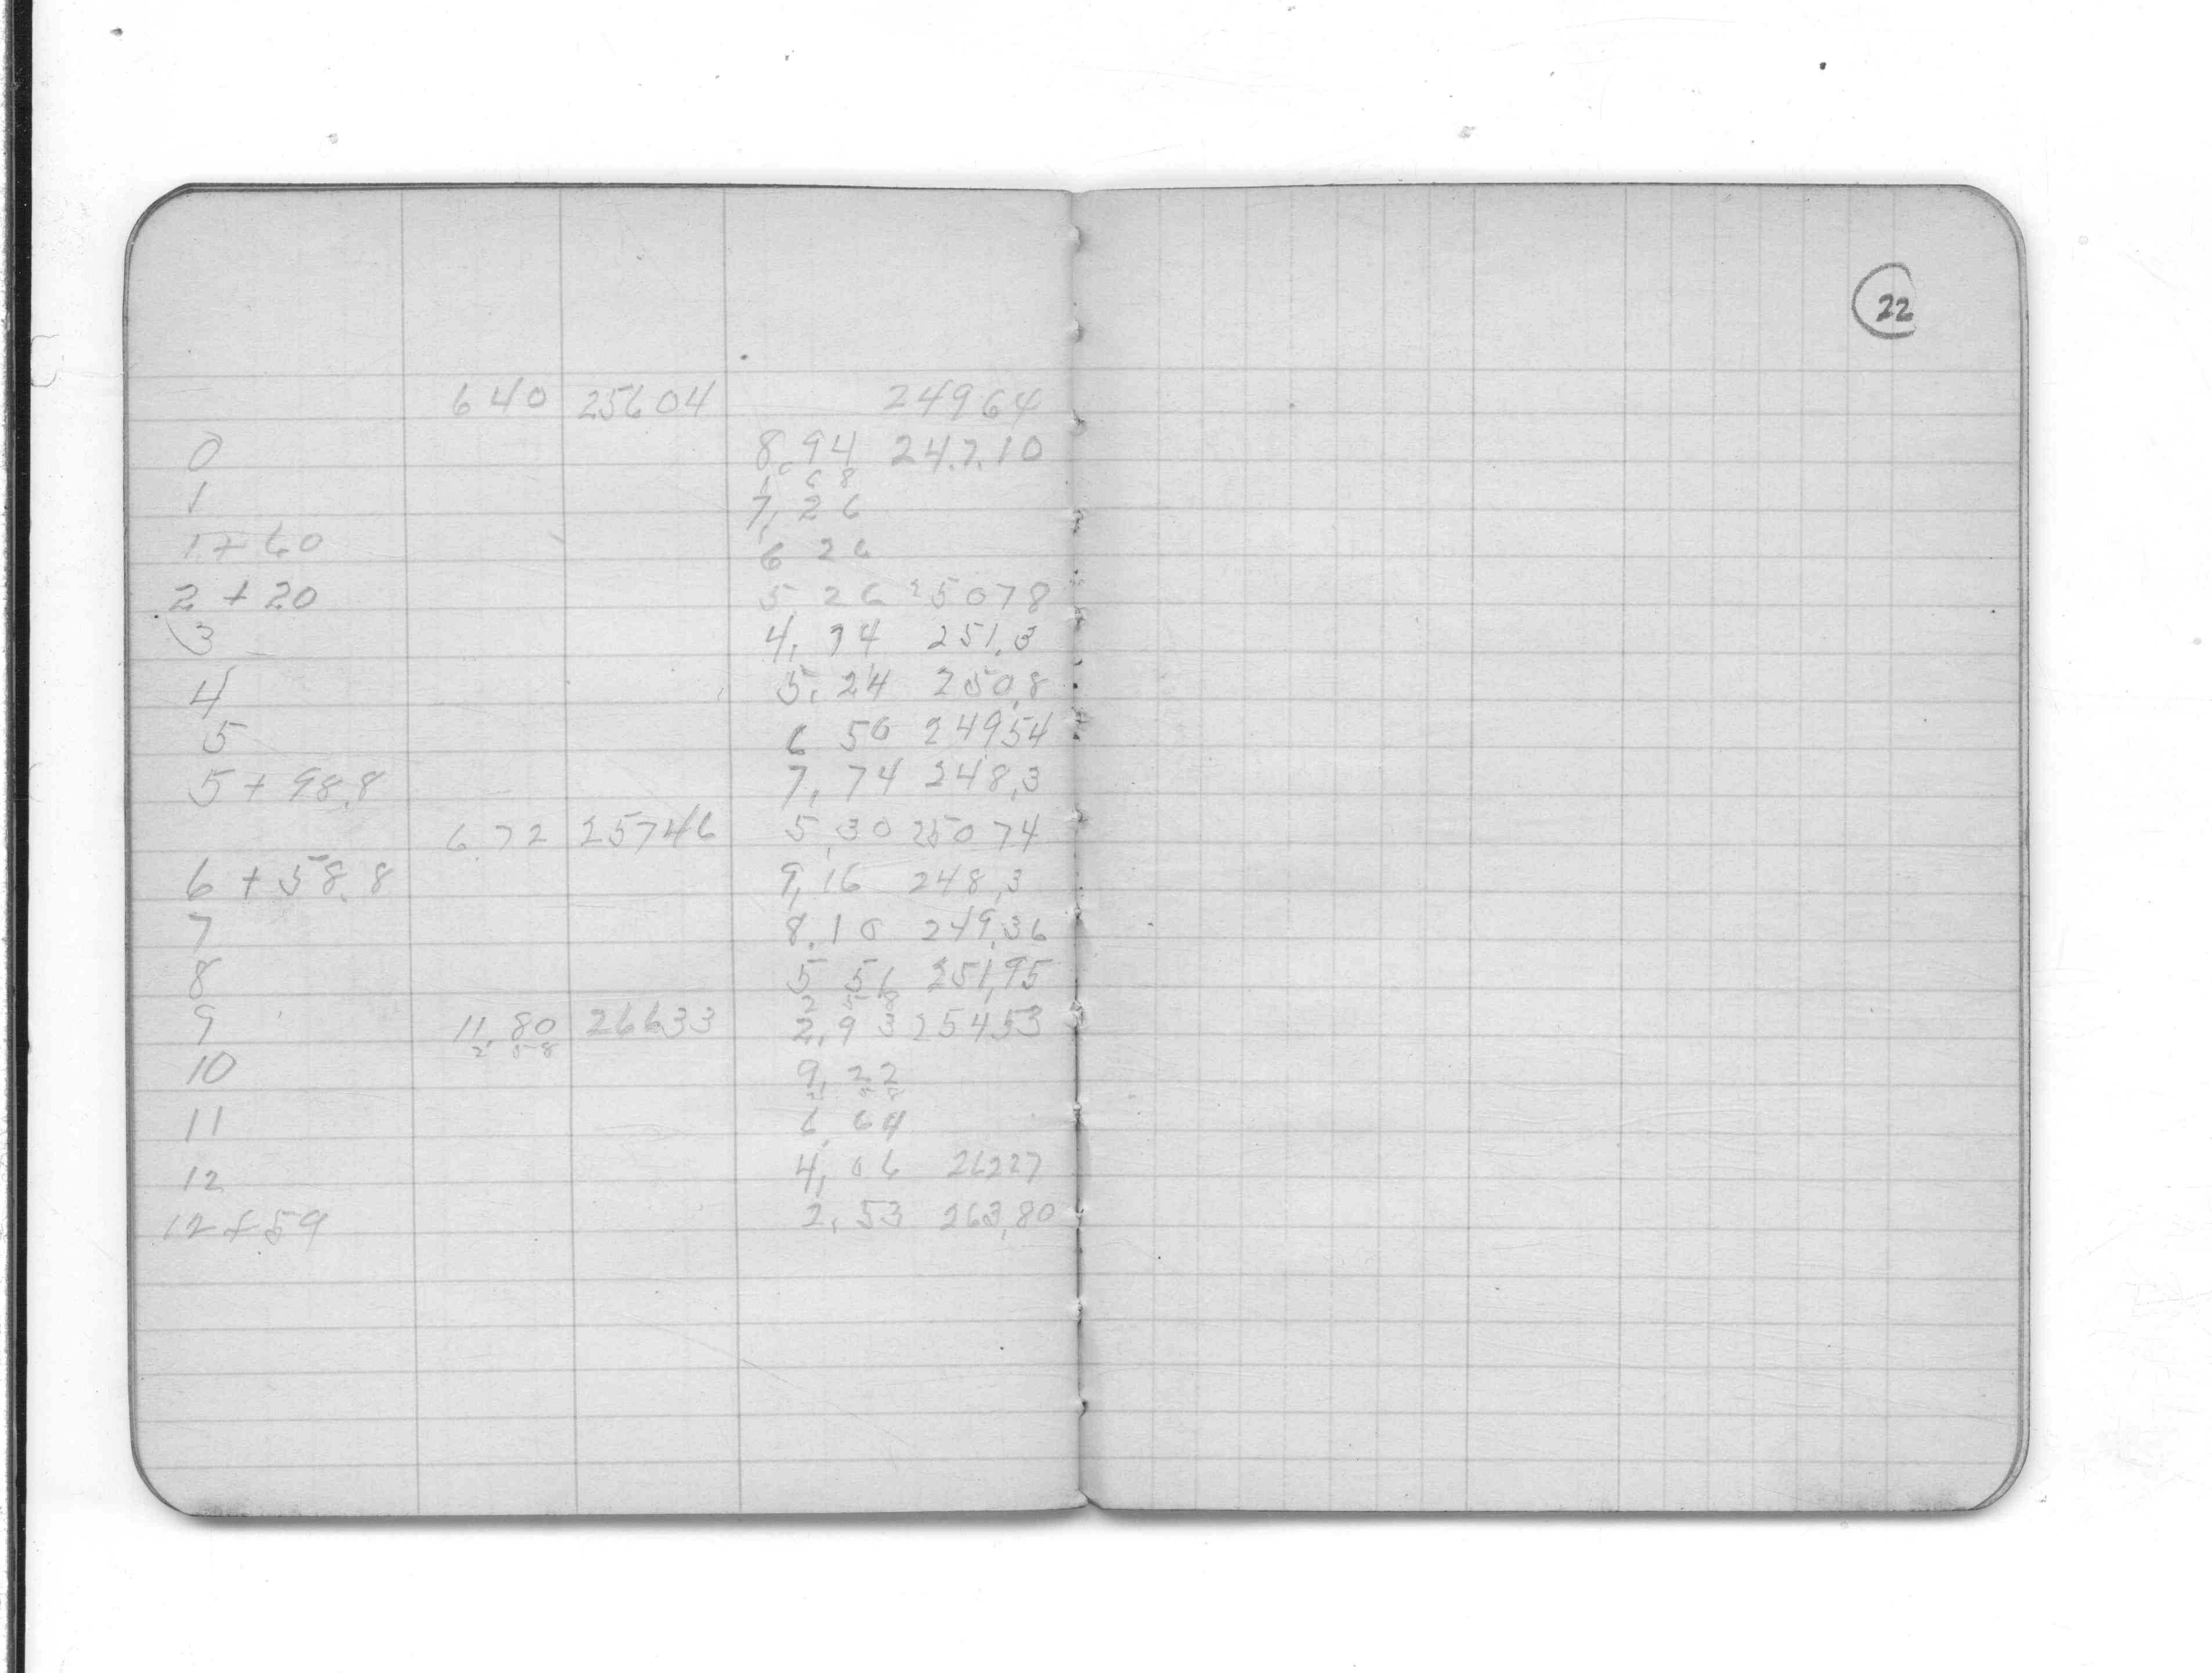 640 25604 24964
0 8,94 24.7.10
1 6 8
1 7,26
1+60 6 26
2+20 5 26 25078
3 4,74 251.3
4 5.24 250,8
5 6 50 24954
5+98.8 7,74 248,3
6.72 25746 5,30 25074
6+58.8 9,16 248,3
7 8.10 249.36
8 5 56 251,95
2 58
9 11,80 26633 2,93 25453
2 58
10 9,22
11 6,64
12 4,06 26227
12+59 2,53 263,80
22